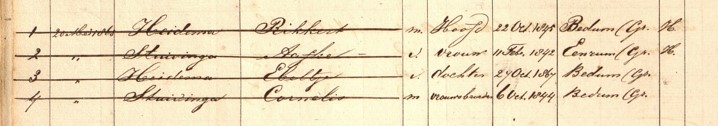 1 Heidema Rikkert m. Hoofd 22 Oct. 1845 Bedum (Gr. H.
2 " Stuivinga v vrouw 11 Feb. 1842 Eenrum (Gr. H.
3 " Heidema Ebeltje v dochter 29 Oct. 1867 Bedum (Gr.
4 " Stuivinga Cornelis m vrouwsbroeder 6 Oct. 1844 Bedum (Gr.